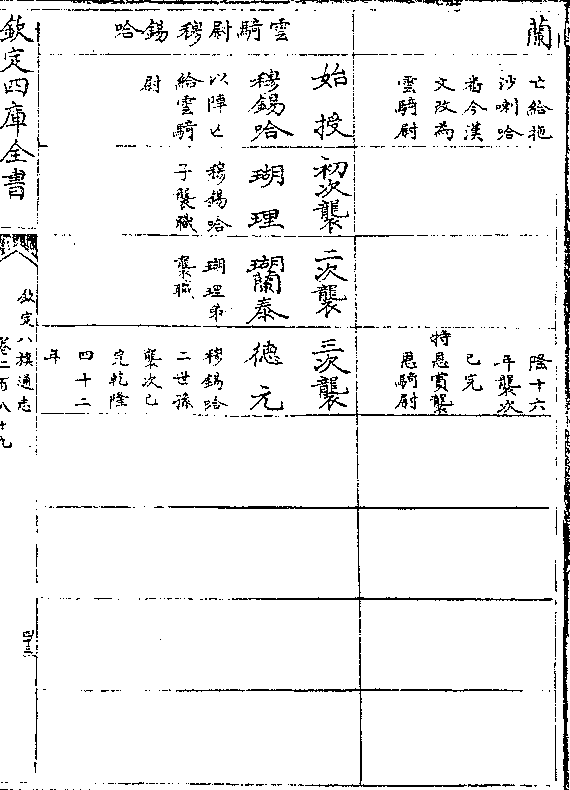 蘭
亡給拖
沙喇哈
畨今漢
文改為
雲騎尉
隆十六
年襲次
已完
特
恩賞襲
恩騎尉
雲騎尉穆錫哈
始授
穆錫哈
以陣亡
給雲騎
尉
初次襲
瑚理
穆錫哈
子襲職
二次襲
瑚蘭泰
瑚理弟
襲職
三次襲
德元
穆錫哈
二世孫
襲次已
完乾隆
四十二
年
欽定四庫全書
欽定八旗通志
卷二百八十九